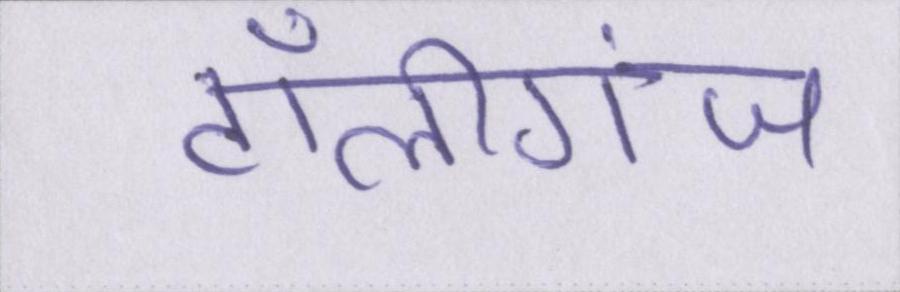 टॉलीगंज